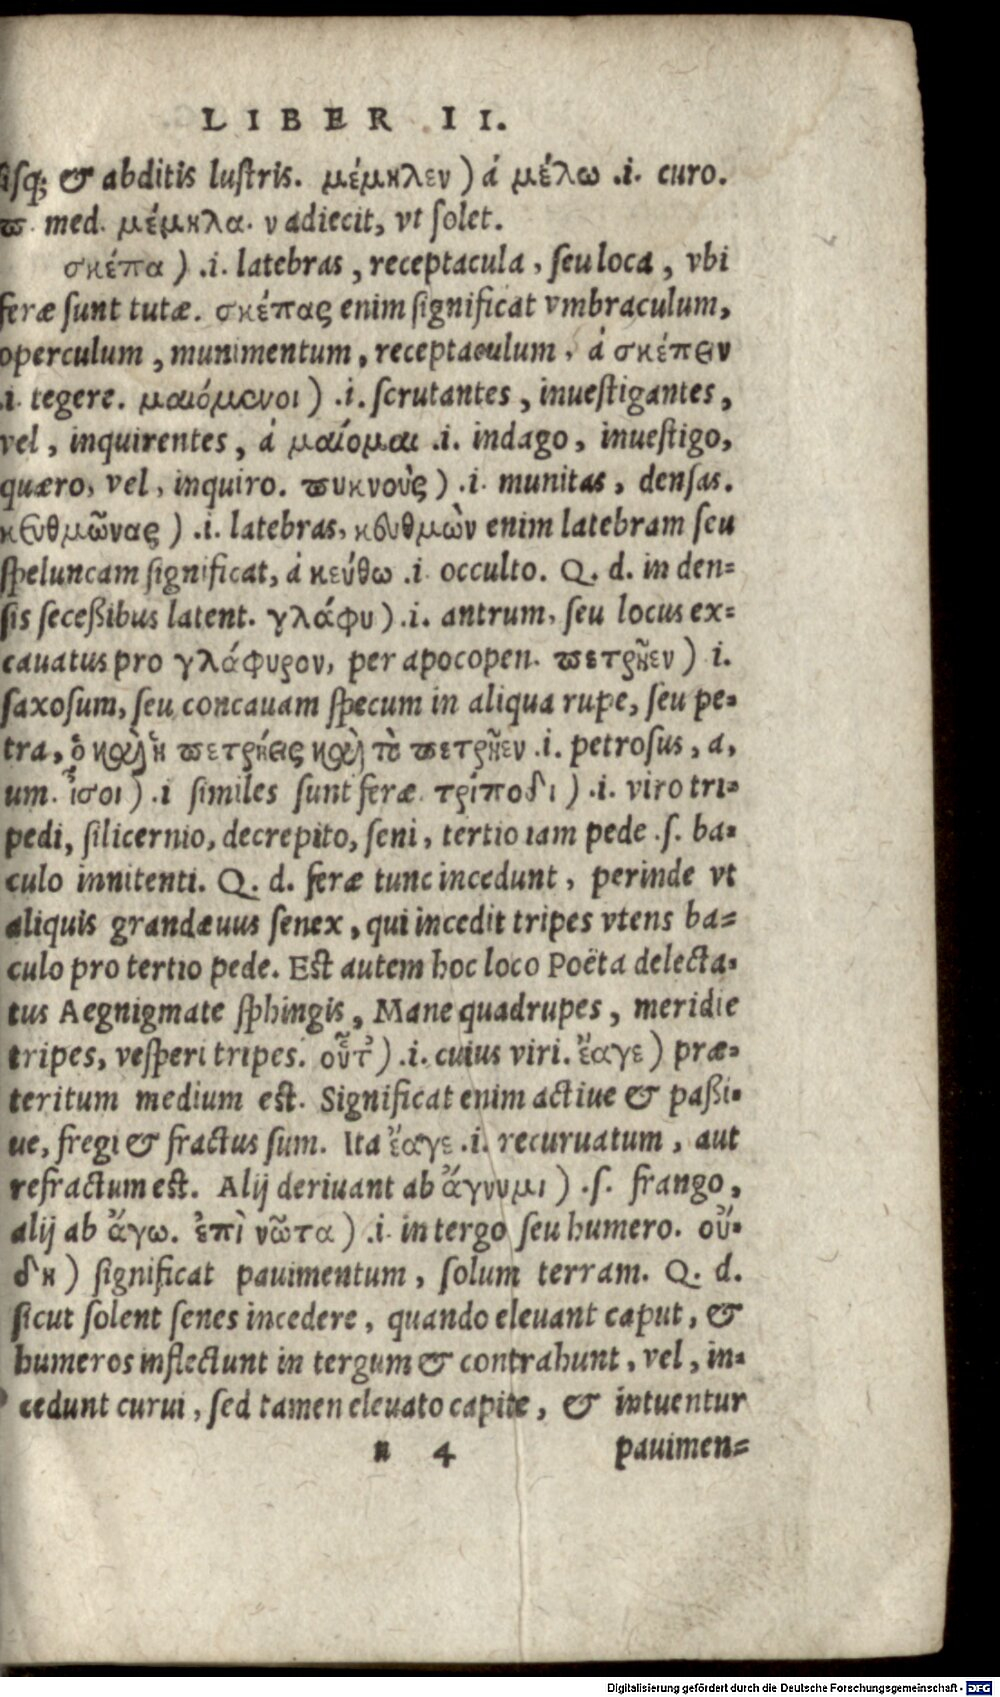 LIBER II.
sisq; & abditis lustris. μέμηλεν ) á μέλω .i. curo.
ϖ. med. μέμηλα. ν adiecit, vt solet.
σκέπα ) .i. latebras, receptacula, seu loca, vbi
feræ sunt tutæ. σκέπας enim significat vmbraculum,
operculum, munimentum, receptaculum, á σκέπειν
.i. tegere. μαιόμενοι ) .i. scrutantes, inuestigantes,
vel, inquirentes, á μαίομαι .i. indago, inuestigo,
quæro, vel, inquiro. ϖυκνοὺς ) .i. munitas, densas.
κευθμῶνας ) .i. latebras, κευθμὼν enim latebram seu
speluncam significat, á κεύθω .i. occulto. Q. d. in den=
sis seceßibus latent. γλάφυ ) .i. antrum, seu locus ex=
cauatus pro γλάφυρον, per apocopen. ϖετρῆεν ) i.
saxosum, seu concauam specum in aliqua rupe, seu pe=
tra, ὁ καὶ ἡ ϖετρήεις καὶ τὸ ϖετρῆεν .i. petrosus, a,
um. ἶσοι ) .i similes sunt feræ. τρίποδι ) .i. viro tri=
pedi, silicernio, decrepito, seni, tertio iam pede .s. ba=
culo innitenti. Q. d. feræ tunc incedunt, perinde vt
aliquis grandæuus senex, qui incedit tripes vtens ba=
culo pro tertio pede. Est autem hoc loco Poëta delecta=
tus Aegnigmate sphingis, Mane quadrupes, meridie
tripes, vesperi tripes. οὗτ ) .i. cuius viri. ἔαγε ) præ=
teritum medium est. Significat enim actiue & paßi=
ue, fregi & fractus sum. Ita ἔαγε .i. recuruatum, aut
refractum est. Alij deriuant ab ἄγνυμι ) .s. frango,
alij ab ἄγω. ἐπὶ νῶτα ) .i. in tergo seu humero. οὔ=
δη ) significat pauimentum, solum terram. Q. d.
sicut solent senes incedere, quando eleuant caput, &
humeros inflectunt in tergum & contrahunt, vel, in=
cedunt curui, sed tamen eleuato capite, & intuentur
n 4 pauimen=
Digitalisierung gefördert durch die Deutsche Forschungsgemeinschaft - DFG